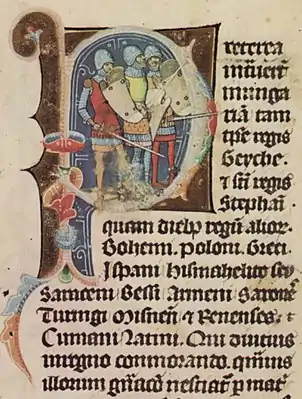 Preterea
intrauerūt
in unga
riā tam
tp̄e regis
Geyche .
⁊ sc̄i regis
Stephani .
quam dieb₉ regū alior̄ .
Bohemi . poloni . Greci
Ispani Hismahelite seu
Saraceni Bessi Armeni Saxones
Turingi Misnen̄ ⁊ Renenses . ⁊
Cumani Latini . Qui diucius
in regno conmorando . q̄muis
illorum gn̄acō nesciat̄ p̱ mat̄